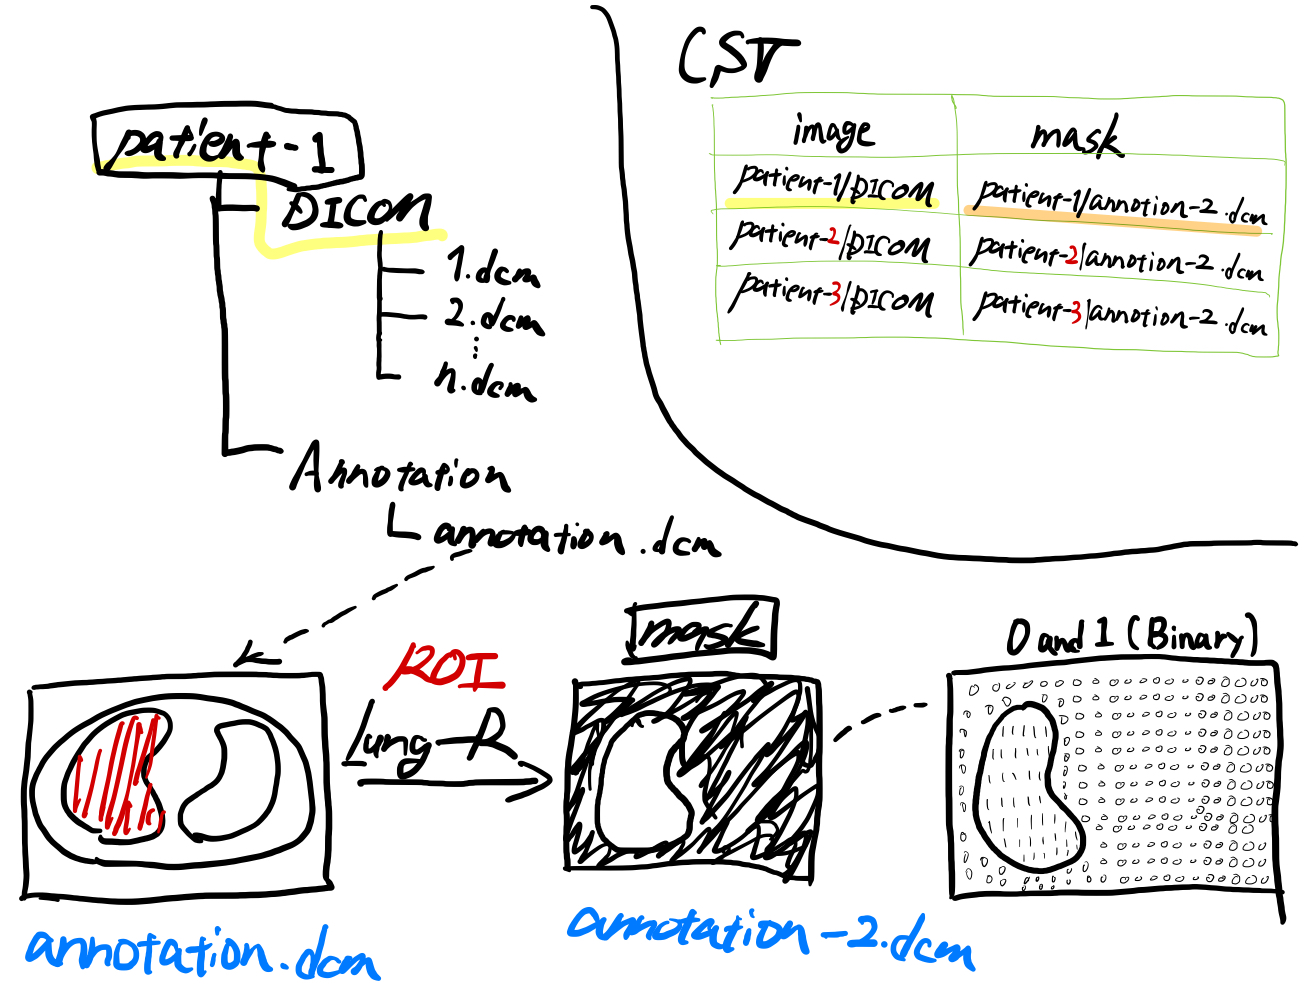 patient-1
DICOM
1.dcm
2.dcm
n.dcm
Annotation
annotation.dcm
CSV
image mask
patient-1/DICOM patient-1/annotion-2.dcm
patient-2/DICOM patient-2/annotion-2.dcm
patient-3/DICOM patient-3/annotion-2.dcm
ROI
lung-R
mask
0 and 1 (Binary)
annotation.dcm
annotation-2.dcm